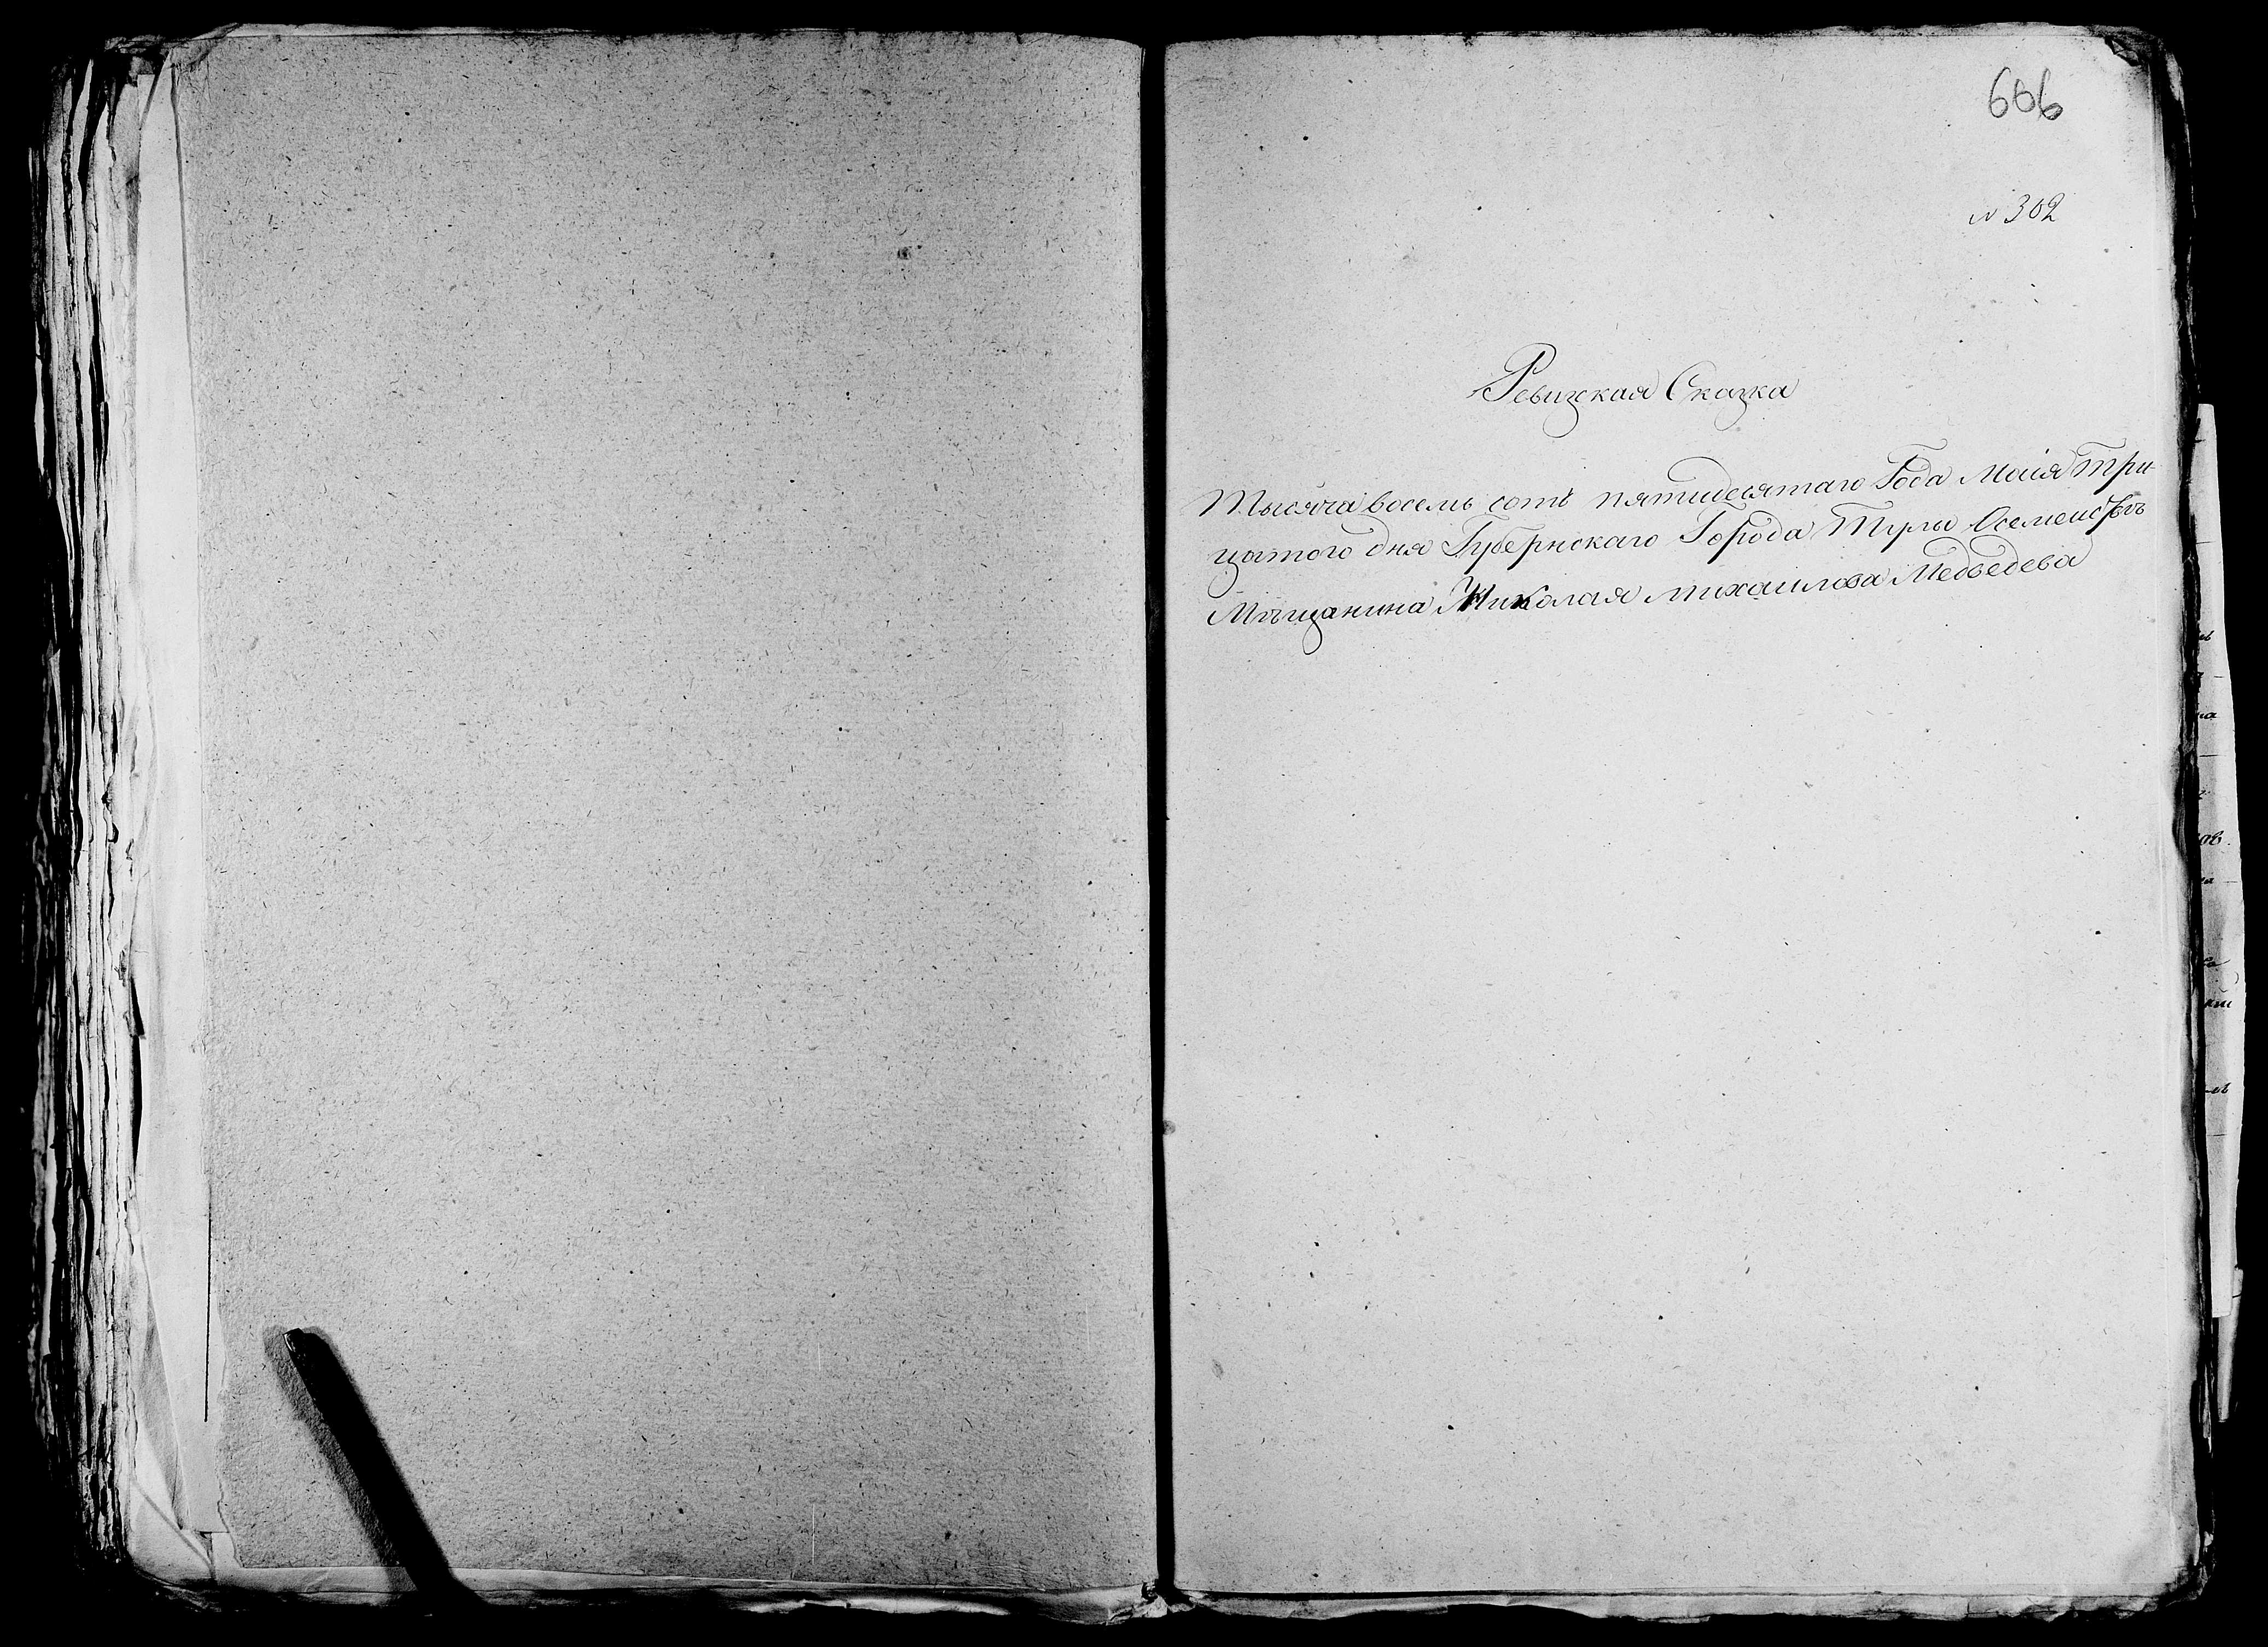 666
№ 302
Ревизская Сказка
Тысяча восемь сотъ пятидесятаго Года Маія Три-
цатого дня Губернскаго Города Тулы Осемействѣ
Мѣщанина Николая михаилова Медведева